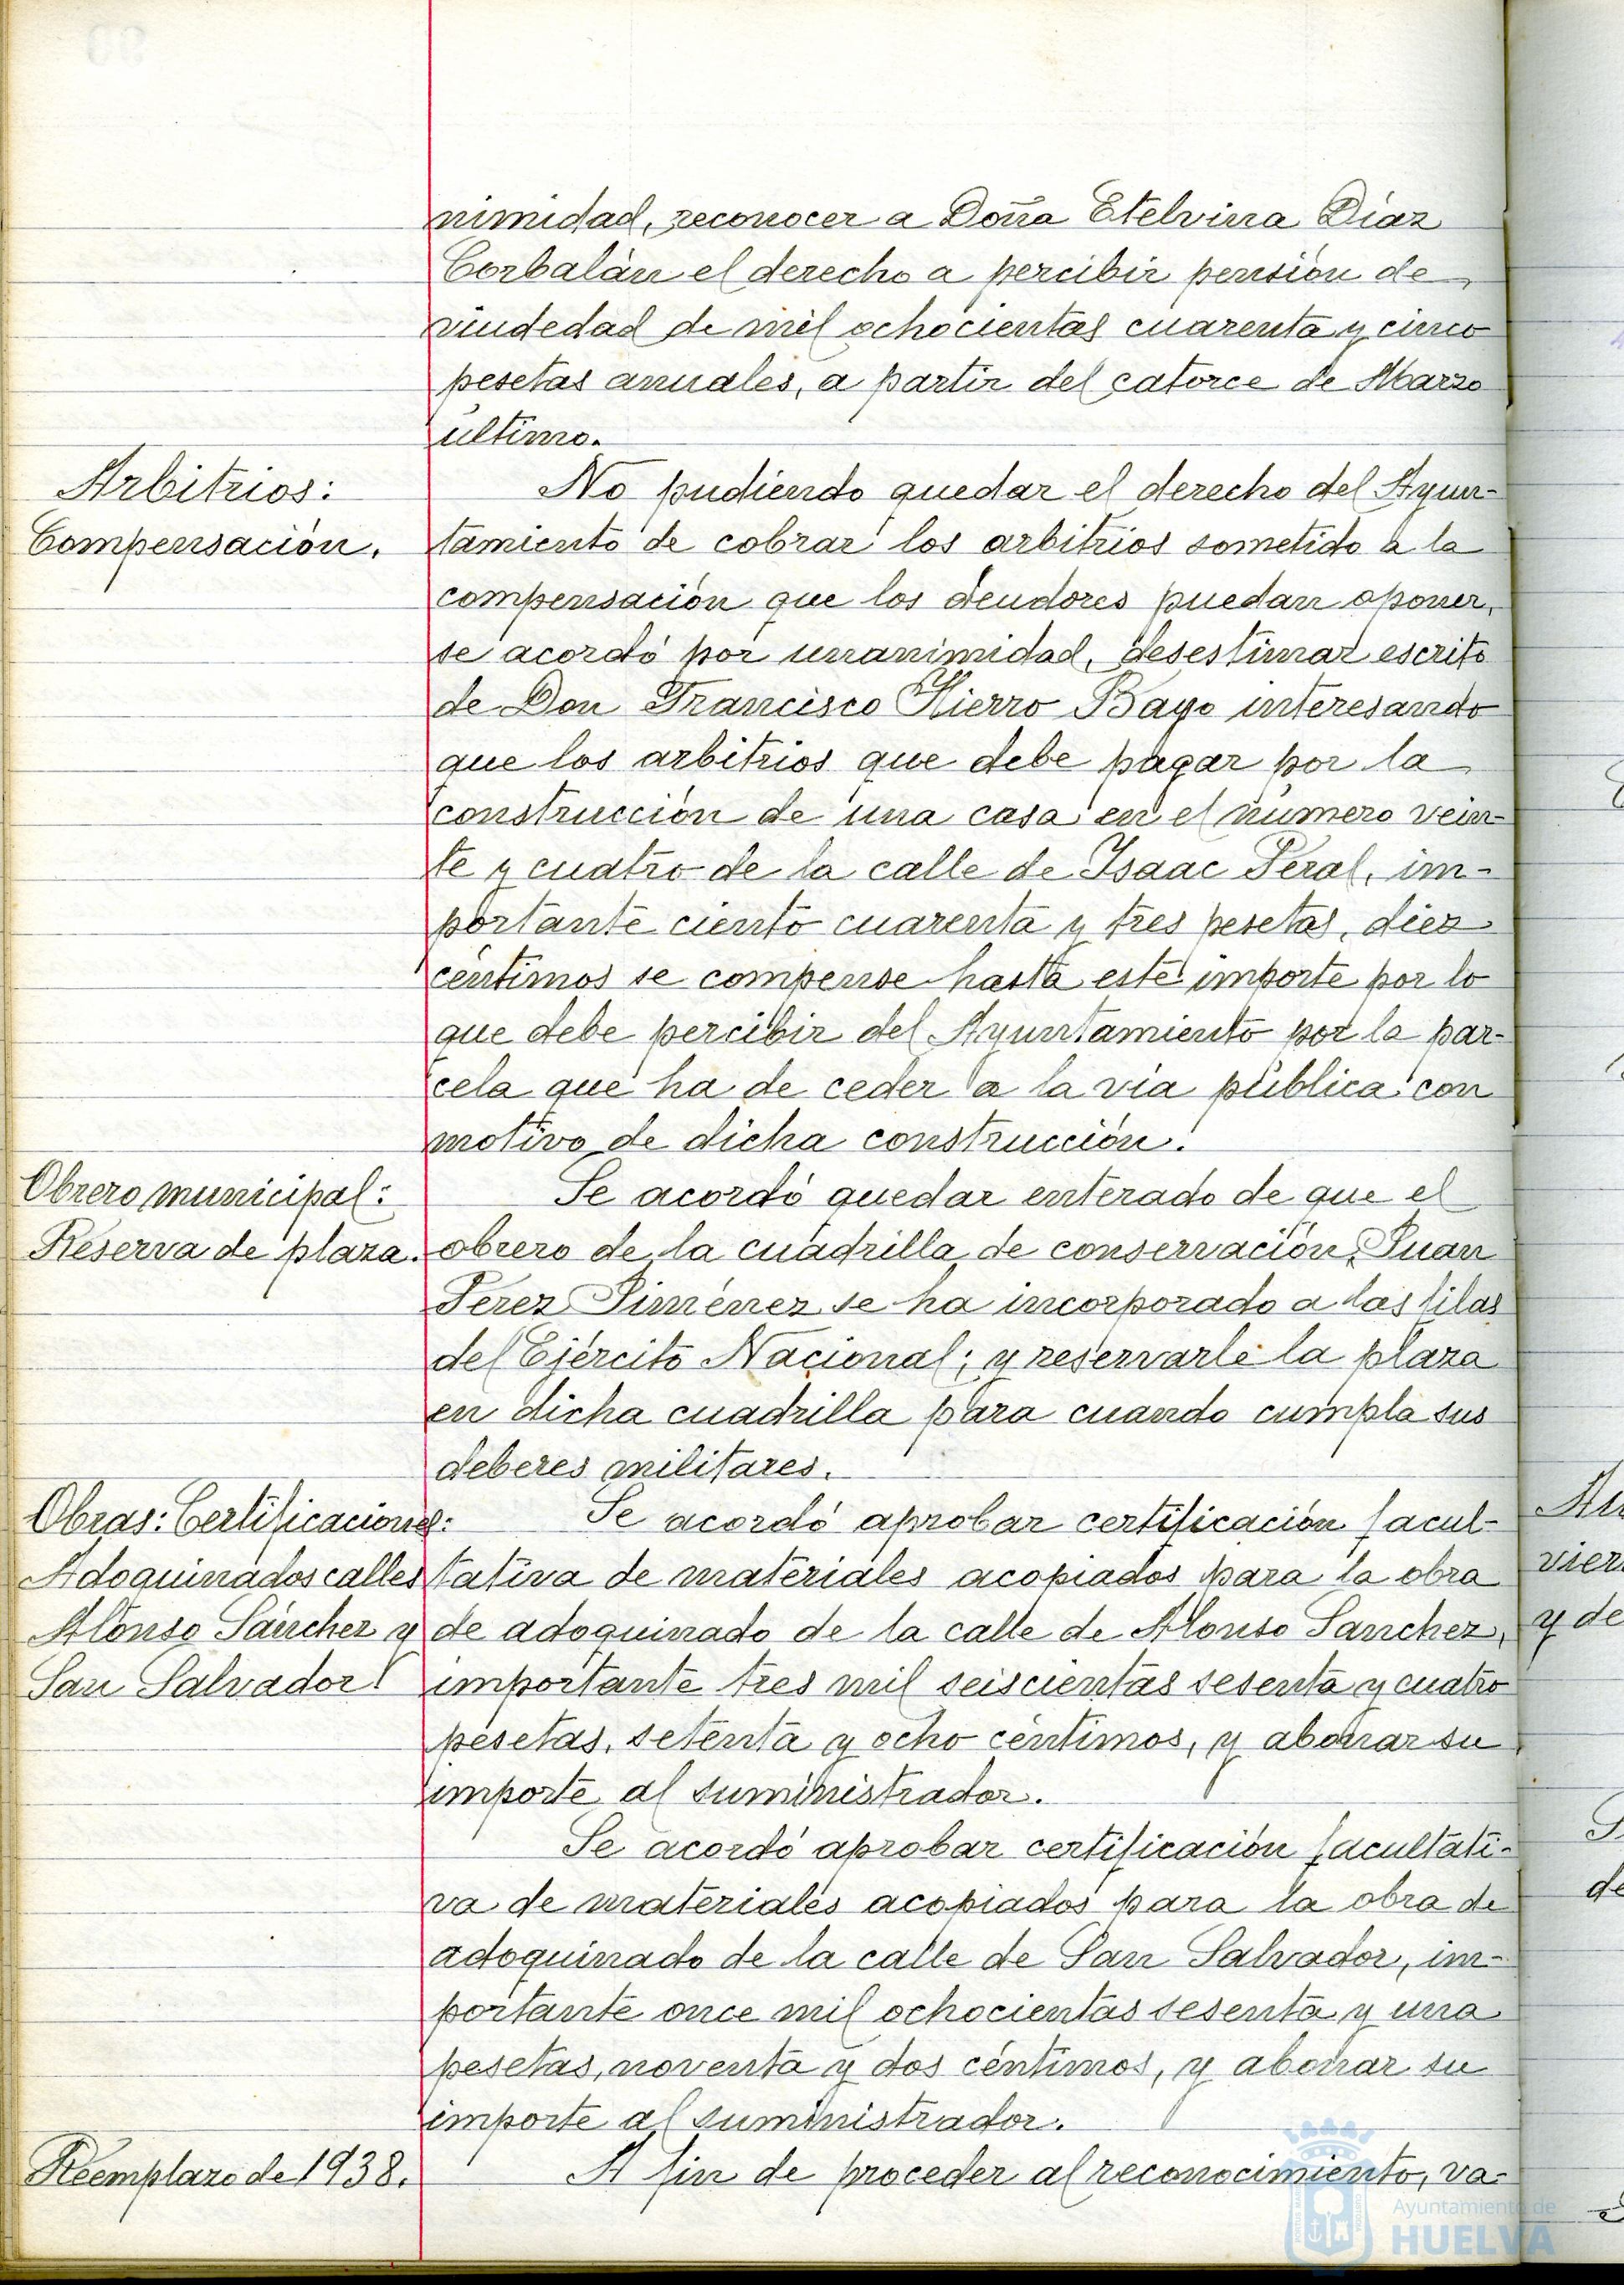 nimidad, reconocer a Doña Etelvina Díaz
Corbalán el derecho a percibir pensión de
viudedad de mil ochocientas cuarenta y cinco
pesetas anuales, a partir del catorce de Marzo
último.
Arbitrios:
Compensación.
No pudiendo quedar el derecho del Ayun-
tamiento de cobrar los arbitrios sometido a la
compensación que los deudores puedan oponer,
se acordó por unanimidad, desestimar escrito
de Don Francisco Hierro Bayo interesando
que los arbitrios que debe pagar por la
construcción de una casa en el número vein-
te y cuatro de la calle de Isaac Peral, im-
portante ciento cuarenta y tres pesetas, diez
céntimos se compense hasta este importe por lo
que debe percibir del Ayuntamiento por la par-
cela que ha de ceder a la vía pública con
motivo de dicha construcción.
Obrero municipal:
Reserva de plaza.
Se acordó quedar enterado de que el
obrero de la cuadrilla de conservación, Juan
Perez Jiménez se ha incorporado a las filas
del Ejército Nacional; y reservarle la plaza
en dicha cuadrilla para cuando cumpla sus
deberes militares.
Obras: Certificaciones:
Adoquinados calles
Alonso Sánchez y
San Salvador.
Se acordó aprobar certificación facul-
tativa de materiales acopiados para la obra
de adoquinado de la calle de Alonso Sanchez,
importante tres mil seiscientas sesenta y cuatro
pesetas, setenta y ocho céntimos, y abonar su
importe al suministrador.
Se acordó aprobar certificación facultati-
va de materiales acopiados para la obra de
adoquinado de la calle de San Salvador, im-
portante once mil ochocientas sesenta y una
pesetas, noventa y dos céntimos, y abonar su
importe al suministrador.
Reemplazo de 1938.
A fin de proceder al reconocimiento, va-
Ayuntamiento de
HUELVA